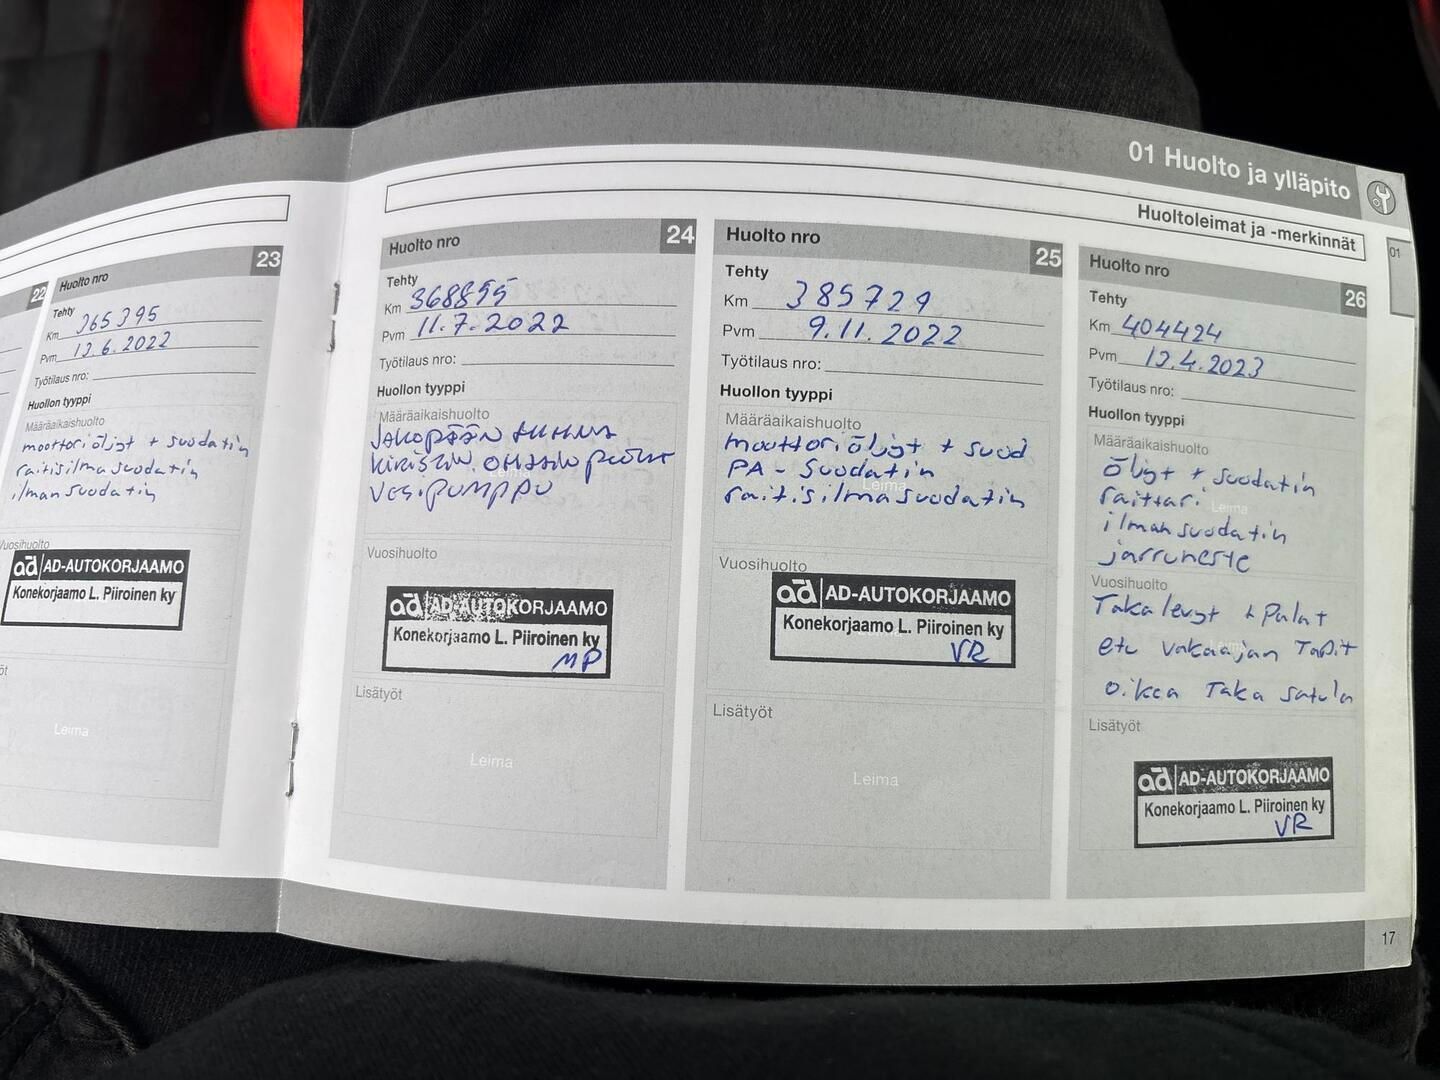 01 Huolto ja ylläpito
Huoltoleimat ja -merkinnät
01
22
Huolto nro 23
Tehty
Km 365395
Pvm 13.6.2022
Työtilaus nro:
Huollon tyyppi
Määräaikaishuolto
moottoriöljyt + suodatin
raitisilmasuodatin
ilmansuodatin
Vuosihuolto
ad AD-AUTOKORJAAMO
Konekorjaamo L. Piiroinen ky
Leima
Huolto nro 24
Tehty
Km 368895
Pvm 11.7.2022
Työtilaus nro:
Huollon tyyppi
Määräaikaishuolto
Jakopään hihna
kiristin, ohjain
vesipumppu
Leima
Vuosihuolto
ad AD-AUTOKORJAAMO
Konekorjaamo L. Piiroinen ky
MP
Lisätyöt
Leima
Huolto nro 25
Tehty
Km 385729
Pvm 9.11.2022
Työtilaus nro:
Huollon tyyppi
Määräaikaishuolto
moottoriöljyt + suod
PA - suodatin
Leima
raitisilmasuodatin
Vuosihuolto
ad AD-AUTOKORJAAMO
Konekorjaamo L. Piiroinen ky
VR
Lisätyöt
Leima
Huolto nro 26
Tehty
Km 404424
Pvm 12.4.2023
Työtilaus nro:
Huollon tyyppi
Määräaikaishuolto
öljyt + suodatin
raittari
Leima
ilmansuodatin
jarruneste
Vuosihuolto
Taka levyt + palat
etu vakaajan Tapit
oikea Taka satula
Lisätyöt
ad AD-AUTOKORJAAMO
Konekorjaamo L. Piiroinen ky
VR
17